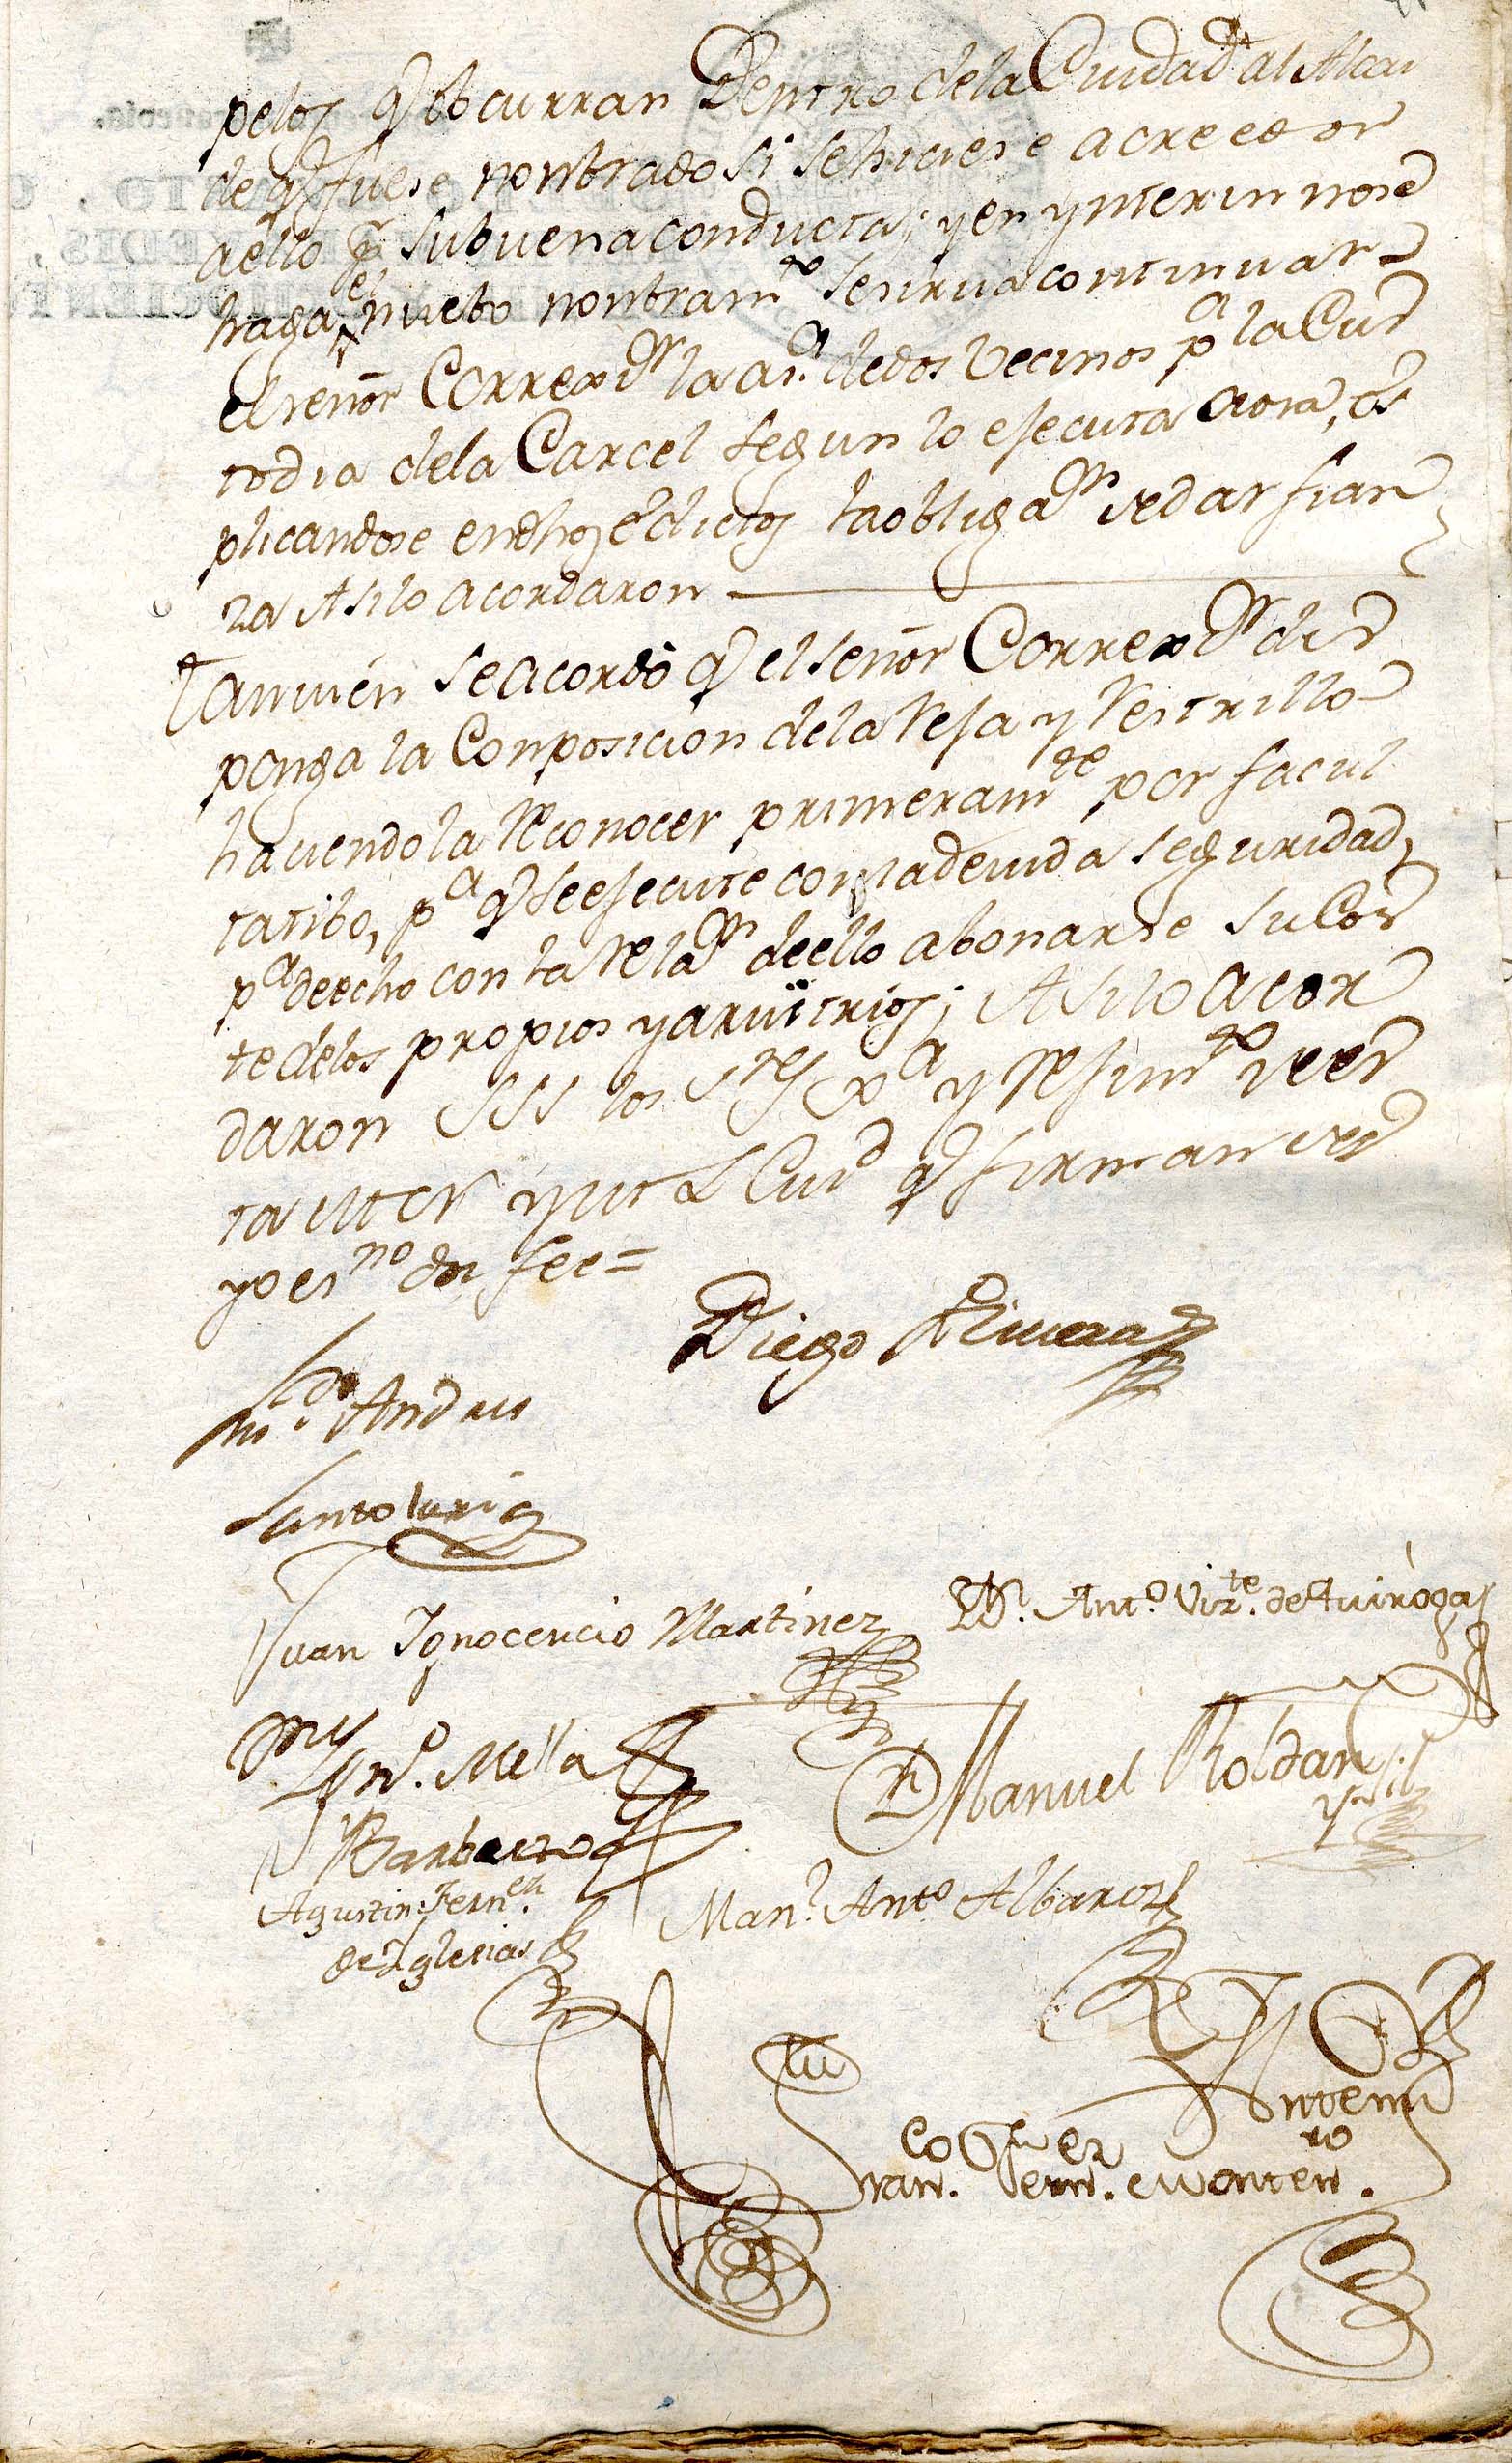 pelos q̃ ôcurran Dentro dela Ciudad al Alcai
de q̃ fuese nonbrado si sehiciese acreedor
aello pr subuenaconducta; y en ynterin nose
haga el nuebo nonbramto sesirva continuar
el señor Correxdr la asa dedos Vecinos pa la Cus
todia dela Carcel segun lo efecuta aora, es
plicandose endhos edictos la obligan dedar fian
za Asilo acordaron
Tanvien se acordó q̃ el señor Correxdr dis
ponga la Conposicion dela Reja y Restrillo
haciendola Reconocer primeramte por facul
tatibo, pa q̃ seefecute conladevida seguridad,
pa deecho con la Relan deello abonarse su Cos
te delos propios yarvitrios; Asilo acor
daron SSS los Sres Xa y Rejimto de es
ta M N y M L Ciud q̃ firman de q̃
yo esno doi fee=
Diego Rivera
Lido
Mo. Andres
Santo
Juan Ygnocencio Martinez
Dn. Anto. Vizte. de Quiroga
Anto. Mella
Barberto
Dn Manuel Roldan
Agustin Fernez.
de Yglesias
Manl. Anto Albarez
Antemi
Franco. Fernez. Monteno.